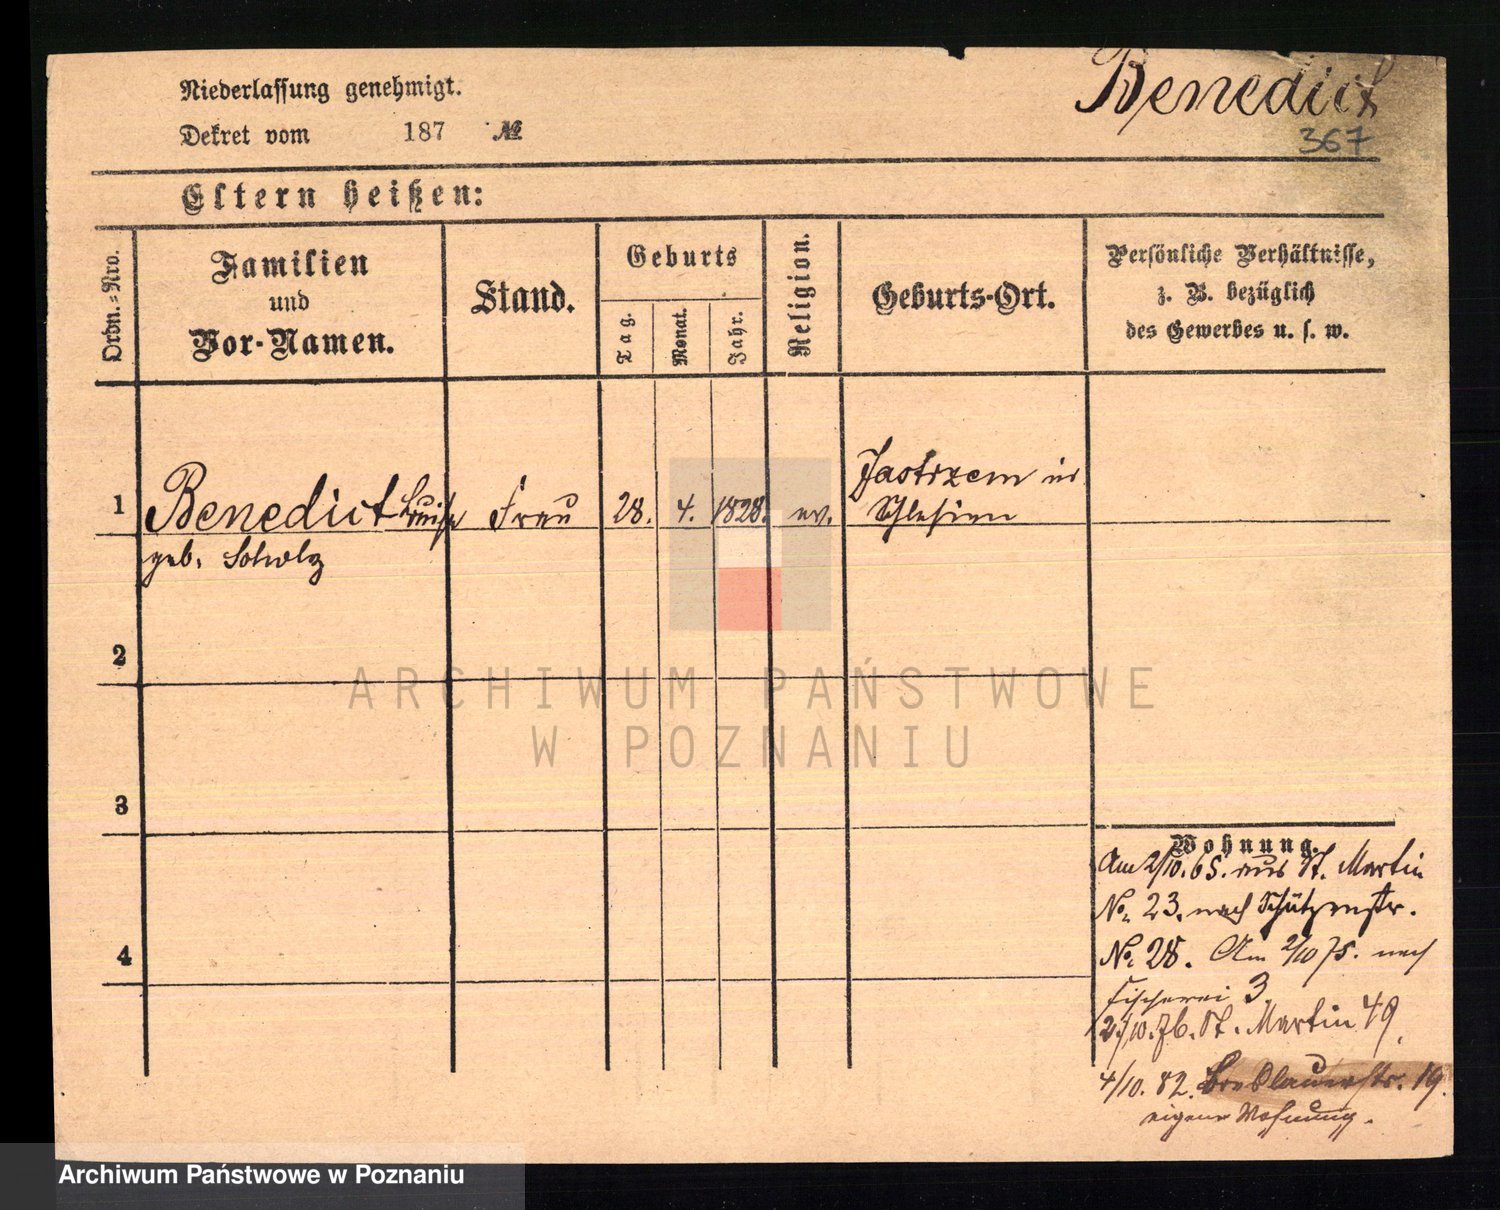 Benedict
367
Niederlassung genehmigt.
Dekret vom 187 №
Eltern heißen:
Ordn.=Nro.
Familien
und
Vor-Namen.
Stand.
Geburts
Tag.
Monat.
Jahr.
Religion.
Geburts-Ort.
Persönliche Verhältnisse,
z. B. bezüglich
des Gewerbes u. s. w.
1 Benedict Luise Frau 28. 4. 1828. ev. Jastrzem in
Schlesien
geb. Scholz
2
3
4
Wohnung.
Am 2/10.65. aus St. Martin
No. 23. nach Schützenstr.
No. 28. Am 2/10 75. nach
Fischerei 3
2/10.76. St. Martin 49.
4/10. 82. Breslauerstr. 19.
eigene Wohnung.
ARCHIWUM PAŃSTWOWE
W POZNANIU
Archiwum Państwowe w Poznaniu